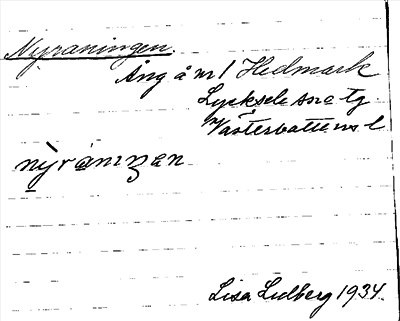 Nyraningen.
Äng å nr 1 Hedmark
Lycksele sn etg
Västerbottens l
nỳrämŋen
Lisa Lidberg 1934.